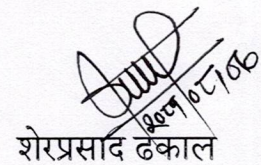 २०८१/०८/०६
शेरप्रसाद ढकाल